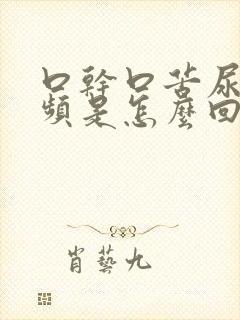 口幹口苦尿
頻是怎麼回
肖藝九